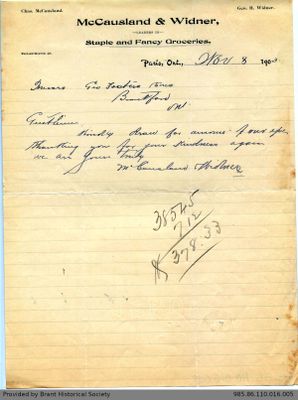 Chas. McCausland.
Geo. H. Widner.
McCausland & Widner,
—DEALERS IN—
Staple and Fancy Groceries.
Paris, Ont., Nov 8 190
Messrs Geo Foster & Sons
Brantford
Ont
Gentlemen
Kindly draw for amount of our a/c
thanking you for your kindness again
we are yours truly
McCausland & Widner
385.45
7.12
$ 378.33
Provided by Brant Historical Society
985.86.110.016.005